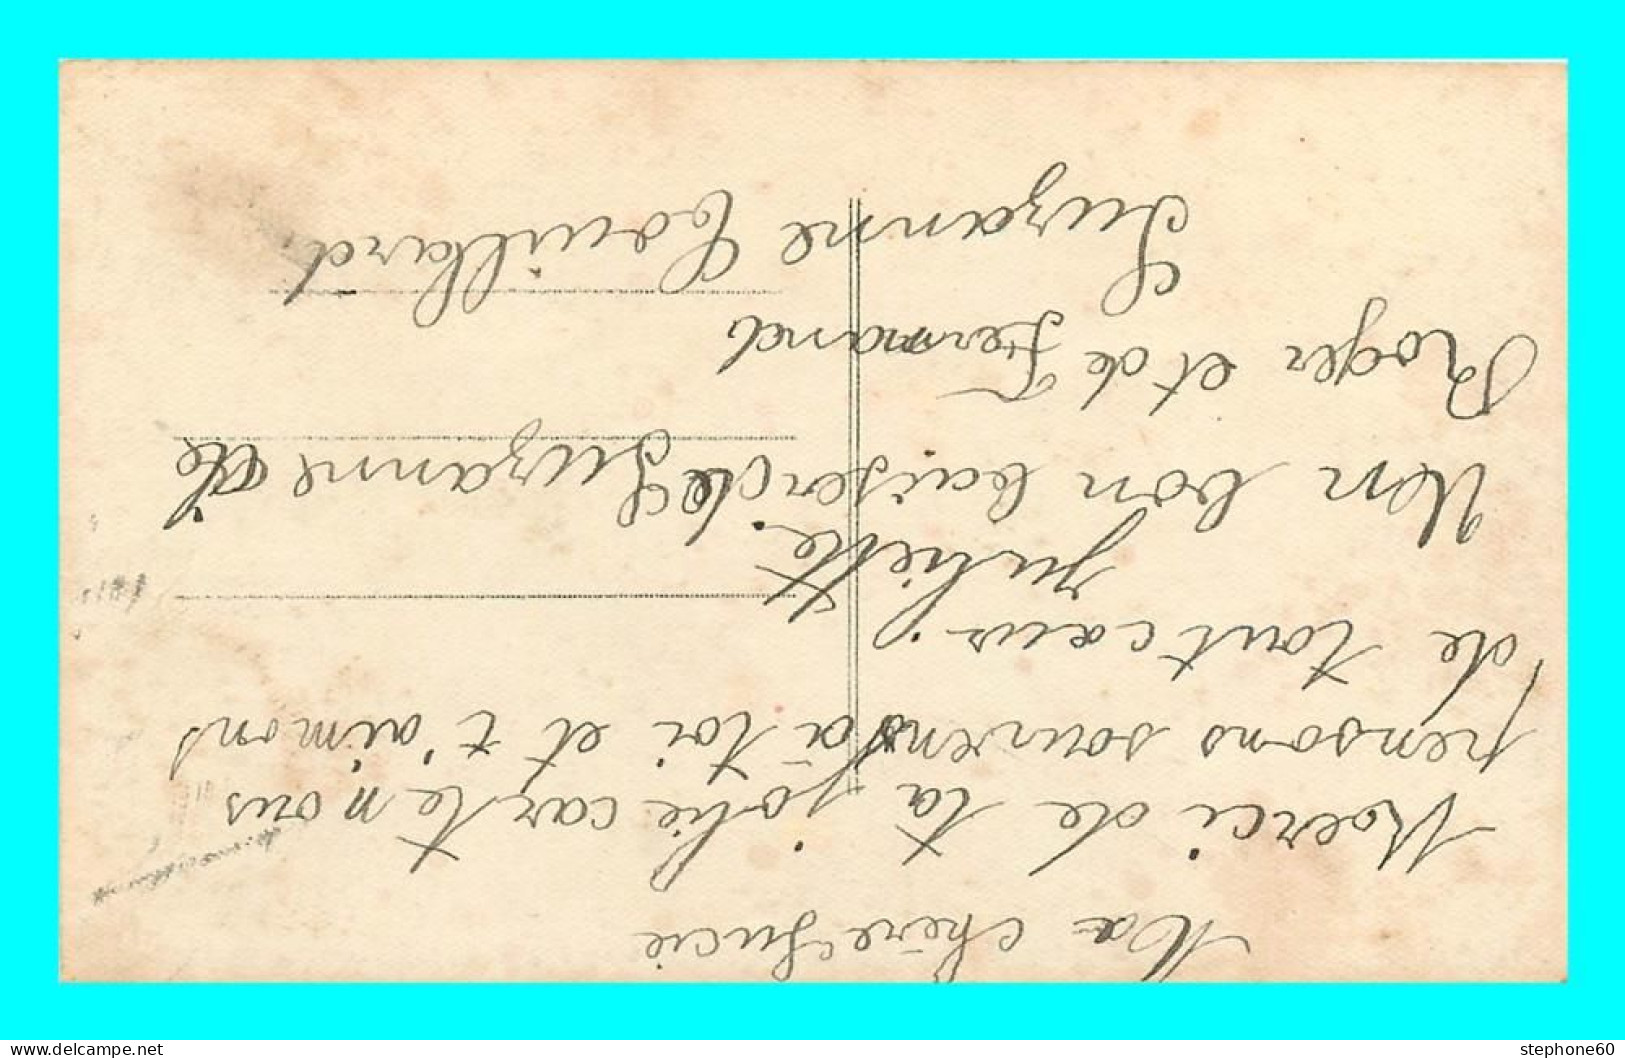 Ma chère Lucie
Merci de ta jolie carte nous
pensons souvens à toi et t'aimons
de tout cœur. Juliette.
Un bon baiser de Suzanne de
Roger et de Fernand
Suzanne Couillard
www.delcampe.net
stephone60